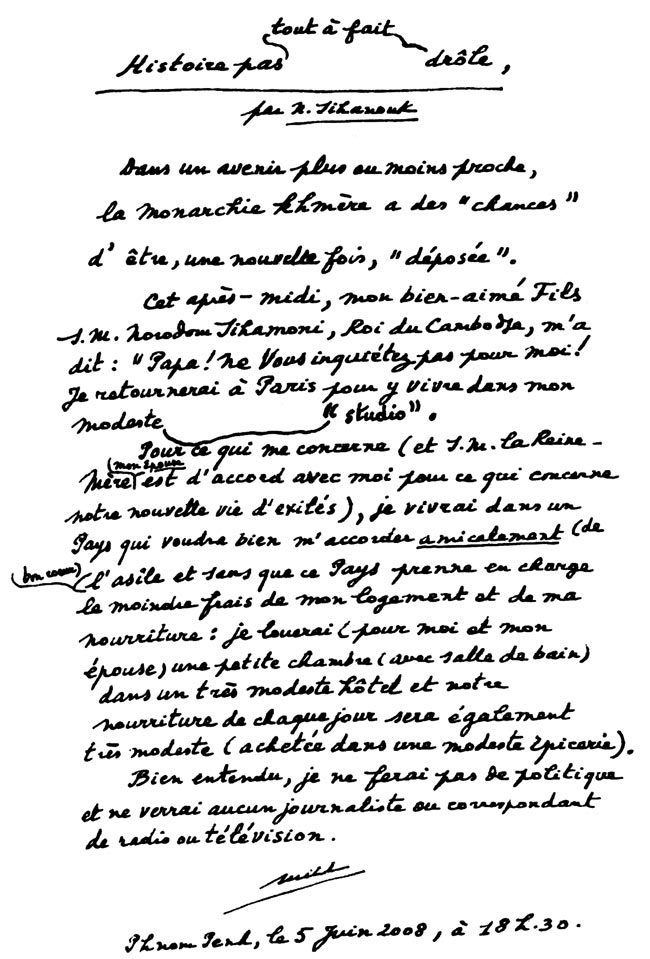 Histoire pas tout à fait drôle,
par N. Sihanouk
Dans un avenir plus ou moins proche,
la Monarchie Khmère a des "chances"
d'être, une nouvelle fois, "déposée".
Cet après-midi, mon bien-aimé Fils
S.M. Norodom Sihamoni, Roi du Cambodge, m'a
dit : "Papa! Ne Vous inquiétez pas pour moi!
Je retournerai à Paris pour y vivre dans mon
modeste "studio".
Pour ce qui me concerne (et S.M. la Reine-
Mère (mon épouse) est d'accord avec moi pour ce qui concerne
notre nouvelle vie d'exilés), je vivrai dans un
Pays qui voudra bien m'accorder amicalement (de
bon cœur) l'asile et sans que ce Pays prenne en charge
le moindre frais de mon logement et de ma
nourriture : je louerai (pour moi et mon
épouse) une petite chambre (avec salle de bain)
dans un très modeste hôtel et notre
nourriture de chaque jour sera également
très modeste (achetée dans une modeste épicerie).
Bien entendu, je ne ferai pas de politique
et ne verrai aucun journaliste ou correspondant
de radio ou télévision.
Phnom Penh, le 5 Juin 2008, à 18h.30.